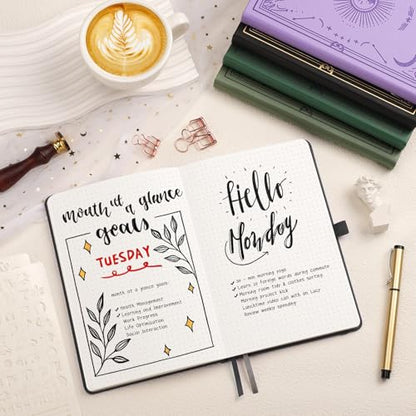 month at a glance
goals
TUESDAY
month at a glance goals
✓ Health Management
✓ Learning and Improvement
Work Progress
Life Optimization
Social Interaction
Hello
Monday
✓ Learn 10 foreign words during commute
✓ Morning room tidy & clothes sorting
Morning project kick
Lunchtime video call with on Lucy
Review weekly spending